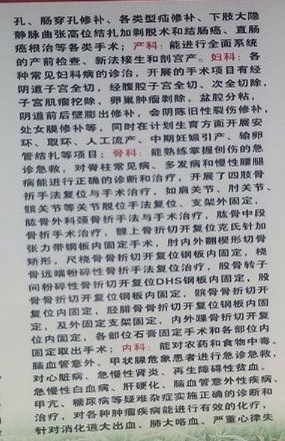 孔、肠穿孔修补、各类型疝修补、下肢大隐
静脉曲张高位结扎加剥脱术和结肠癌、直肠
癌根治等各类手术；产科：能进行全面系统
的产前检查、新法接生和剖宫产。妇科：各
种常见妇科病的诊治，开展的手术项目有经
阴道子宫全切、经腹腔子宫全切、次全切除
子宫肌瘤挖除，卵巢肿瘤剥除，盆腔分粘，
阴道前后壁膨出修补，会阴陈旧性裂伤修补、
处女膜修补等，同时在计划生育方面开展安
环、取环、人工流产、中期妊娠引产、输卵
管结扎等项目；骨科：能熟练掌握创伤的急
诊急救，对脊柱常见病、多发病和慢性腰腿
病能进行正确的诊断和治疗，开展了四肢骨
折手法复位与手术治疗，如肩关节、肘关节、
髋关节等关节脱位手法复位、支架外固定，
肱骨外科颈骨折手法与手术治疗，肱骨中段
骨折手术治疗，髁上骨折切开复位克氏针加
张力带钢板内固定手术，肘内外翻楔形切骨
矫形，尺桡骨骨折切开复位钢板内固定，桡
骨远端粉碎性骨折手法复位治疗，股骨转子
间粉碎性骨折切开复位DHS钢板内固定，股
骨骨折切开复位钢板内固定，髌骨骨折切开
复位内固定，胫腓骨骨折切开复位钢板内固
定，及外固定支架固定，内外踝骨折切开复
位内固定、各部位石膏固定手术和各部位内
固定取出手术；内科：能对农药和食物中毒、
脑血管意外、甲状腺危象患者进行急诊急救，
对心脏病、急慢性肾炎、再生障碍性贫血、
急慢性白血病、肝硬化、脑血管意外性疾病、
甲亢、糖尿病等疑难杂症实施正确的诊断和
治疗，对各种肿瘤疾病能进行有效的化疗，
针对消化道大出血、肺大咯血、严重心律失